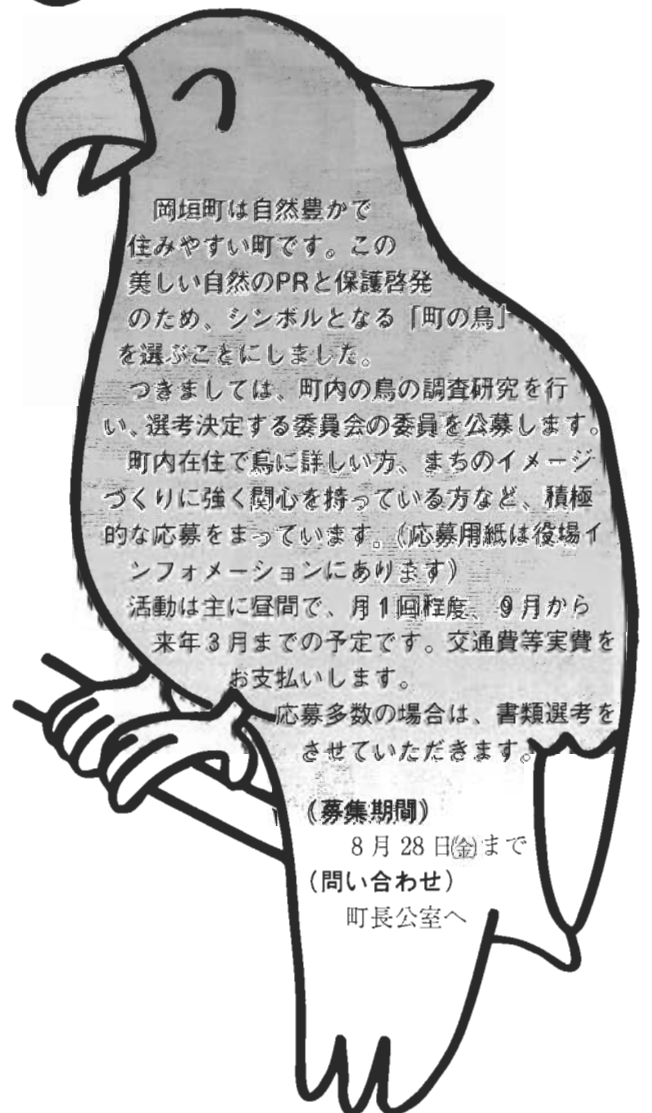 岡垣町は自然豊かで
住みやすい町です。この
美しい自然のPRと保護啓発
のため、シンボルとなる「町の鳥」
を選ぶことにしました。
つきましては、町内の鳥の調査研究を行
い、選考決定する委員会の委員を公募します。
町内在住で鳥に詳しい方、まちのイメージ
づくりに強く関心を持っている方など、積極
的な応募をまっています。(応募用紙は役場イ
ンフォメーションにあります)
活動は主に昼間で、月1回程度、9月から
来年3月までの予定です。交通費等実費を
お支払いします。
応募多数の場合は、書類選考を
させていただきます。
(募集期間)
8月28日㈮まで
(問い合わせ)
町長公室へ